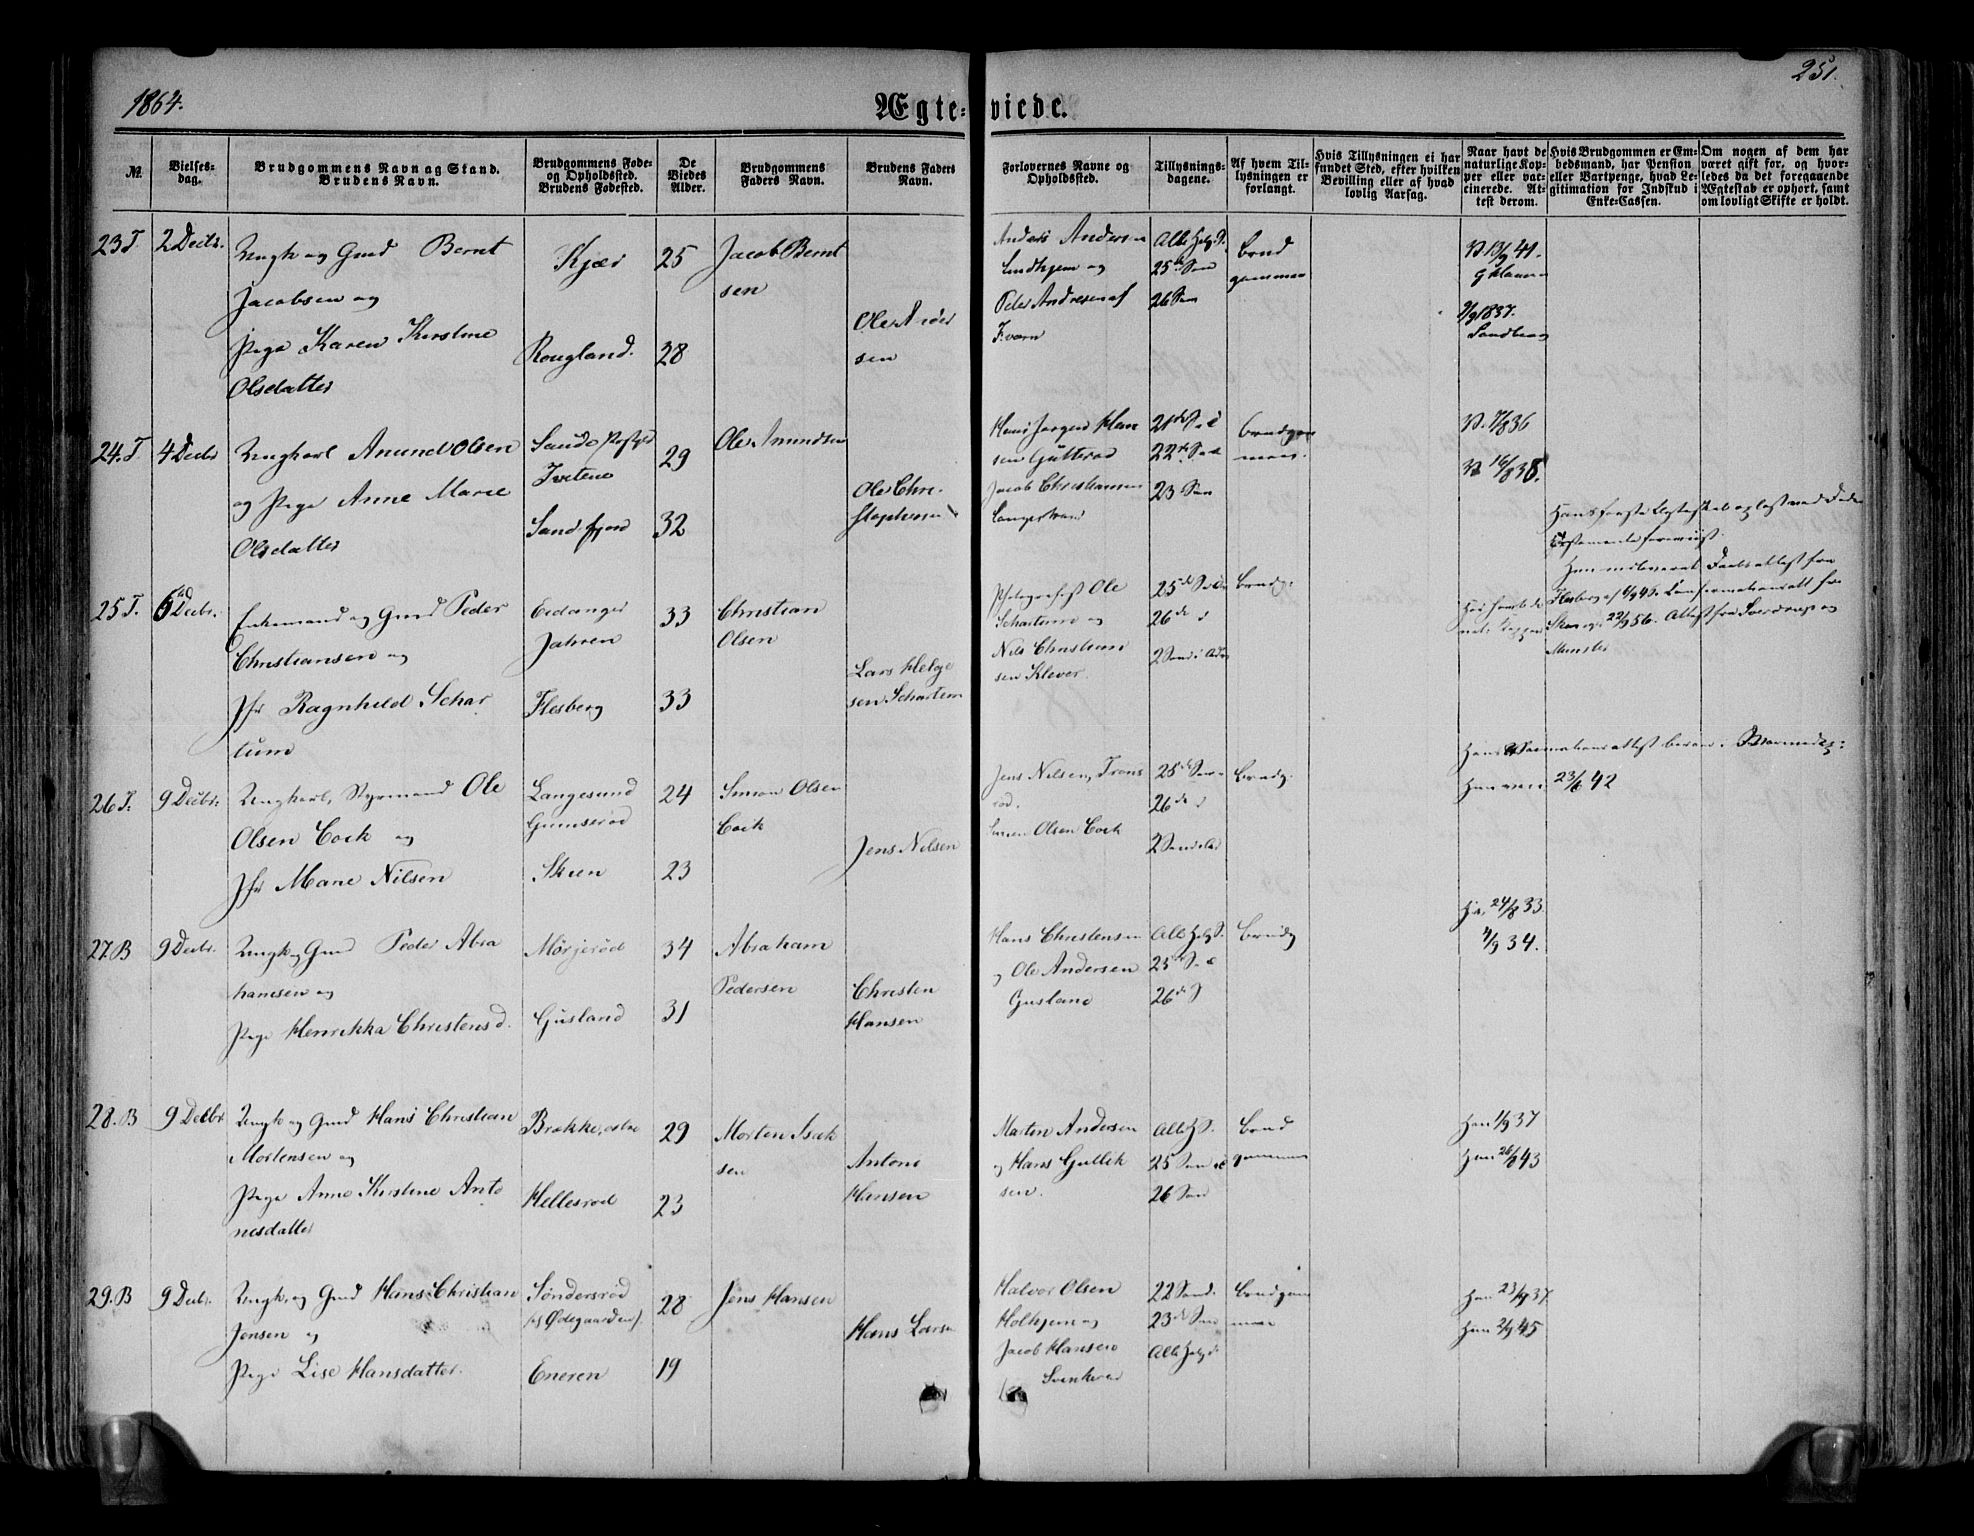 1864.
251.
Ægte-viede.
№
Vielses-
dag.
Brudgommens Navn og Stand.
Brudens Navn.
Brudgommens Føde-
og Opholdssted.
Brudens Fødested.
De
Viedes
Alder.
Brudgommens
Faders Navn.
Brudens Faders
Navn.
Forlovernes Navne og
Opholdssted.
Tillysnings-
dagene.
Af hvem Til-
lysningen er
forlangt.
Hvis Tillysningen ei har
fundet Sted, efter hvilken
Bevilling eller af hvad
lovlig Aarsag.
Naar havt de
naturlige Kop-
per eller vac-
cinerede. At-
test derom.
Hvis Brudgommen er Em-
bedsmand, har Pension
eller Vartpenge, hvad Le-
gitimation for Indskud i
Enke-Cassen.
Om nogen af dem har
været gift før, og hvor-
ledes da det foregaaende
Ægteskab er ophørt, samt
om lovligt Skifte er holdt.
23 T. 2 Decbr.
Ungk og Gmd Bernt
Jacobsen og
Pige Karen Kirstine
Olsdatter
Kjær
Rougland.
25
28
Jacob Bernt
sen
Ole Ander
sen
Anders Andersen
Lindhjem og
Peder Andresen af
Kvarn
Alle Helg. D.
25de Søn
26 Søn
Brud
gommen
V. 13/9 41.
1837.
24. T. 4 Decbr
Ungkarl Anund Olsen
og Pige Anne Marie
Olsdatter
Tveteno
Sandefjord
29
32
Ole Amundsen
Ole Chri-
stophersen
Hans Jørgen Han
sen Gutterød
Jacob Christiansen
Langestrand
21de S
22de S
23 Søn
Brudgom
men.
V. 7/8 36
V. 16/8 38.
25 T. 6 Decbr.
Enkemand og Gmd Peder
Christiansen og
Jfr Ragnhild Schar
tum
Eidanger
Jahren
Flesberg
33
33
Christian
Olsen
Lars Helge
sen Schartum
Ole
Schartum og
Nils Christian
sen Klever.
25de
26de
2 Sønd i Adv
Brudg.
Hans første Ægteskab opløst ved Døden
Flesberg af
22/9 56. Attest fra
26 T. 9 Decbr.
Ungkarl, Styrmand Ole
Olsen Cock og
Jfr Marie Nilsen
Langesund
Gumserød
Skien
24
23
Simon Olsen
Cock
Jens Nilsen
Jens Nilsen,
Simon Olsen Cock
25de
26de
Brudg.
Hun vacc 23/6 42
27. B 9 Decbr.
Ungk og Gmd Peder Abra
hamsen og
Pige Henrikka Christensd.
Mörjerød
Gusland
34
31
Abraham
Pedersen
Christen
Hansen
Hans Christensen
og Ole Andersen
Gusland
Alle Helg D.
25de
26de S
Brudg
24/8 33.
4/9 34.
28. B 9 Decbr
Ungk og Gmd Hans Christian
Mortensen og
Pige Anne Kirstine Anto
nisdatter
Brække, østre
Hellesrød
29
23
Morten Isak
sen
Antoni
Hansen
Martin Andersen
og Hans Gullik
sen.
Alle H D.
25 Søn
26 Søn
Brud
gommen
Han 1/9 37
Hun 26/8 43
29. B 9 Decbr.
Ungk, og Gmd Hans Christian
Jensen og
Pige Lise Hansdatter.
Søndersrød
(af Ødegaarden).
Eneren
28
19
Jens Hansen
Hans Larsen
Halvor Olsen
Holhjem og
Jacob Hansen
22 Sønd.
23de Søn
Alle Helg d.
Brudgom
men
Han 23/9 37
Hun 2/9 45